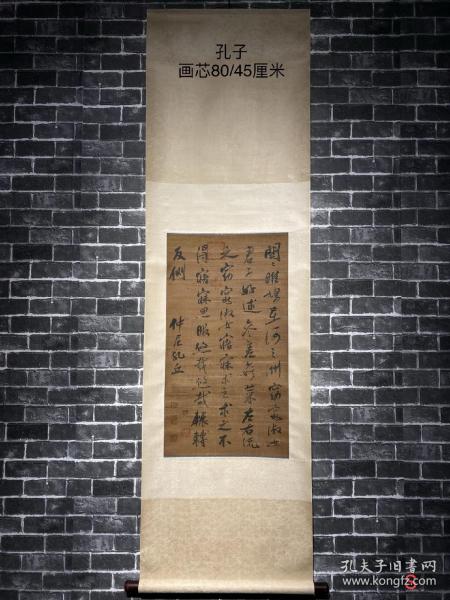 孔子
画芯80/45厘米
關々雎鳩在河之洲窈窕淑女
君子好逑參差荇菜左右流
之窈窕淑女寤寐求之求之不
得寤寐思服悠哉悠哉輾轉
反側
仲尼孔丘
孔夫子旧书网
www.kongfz.com